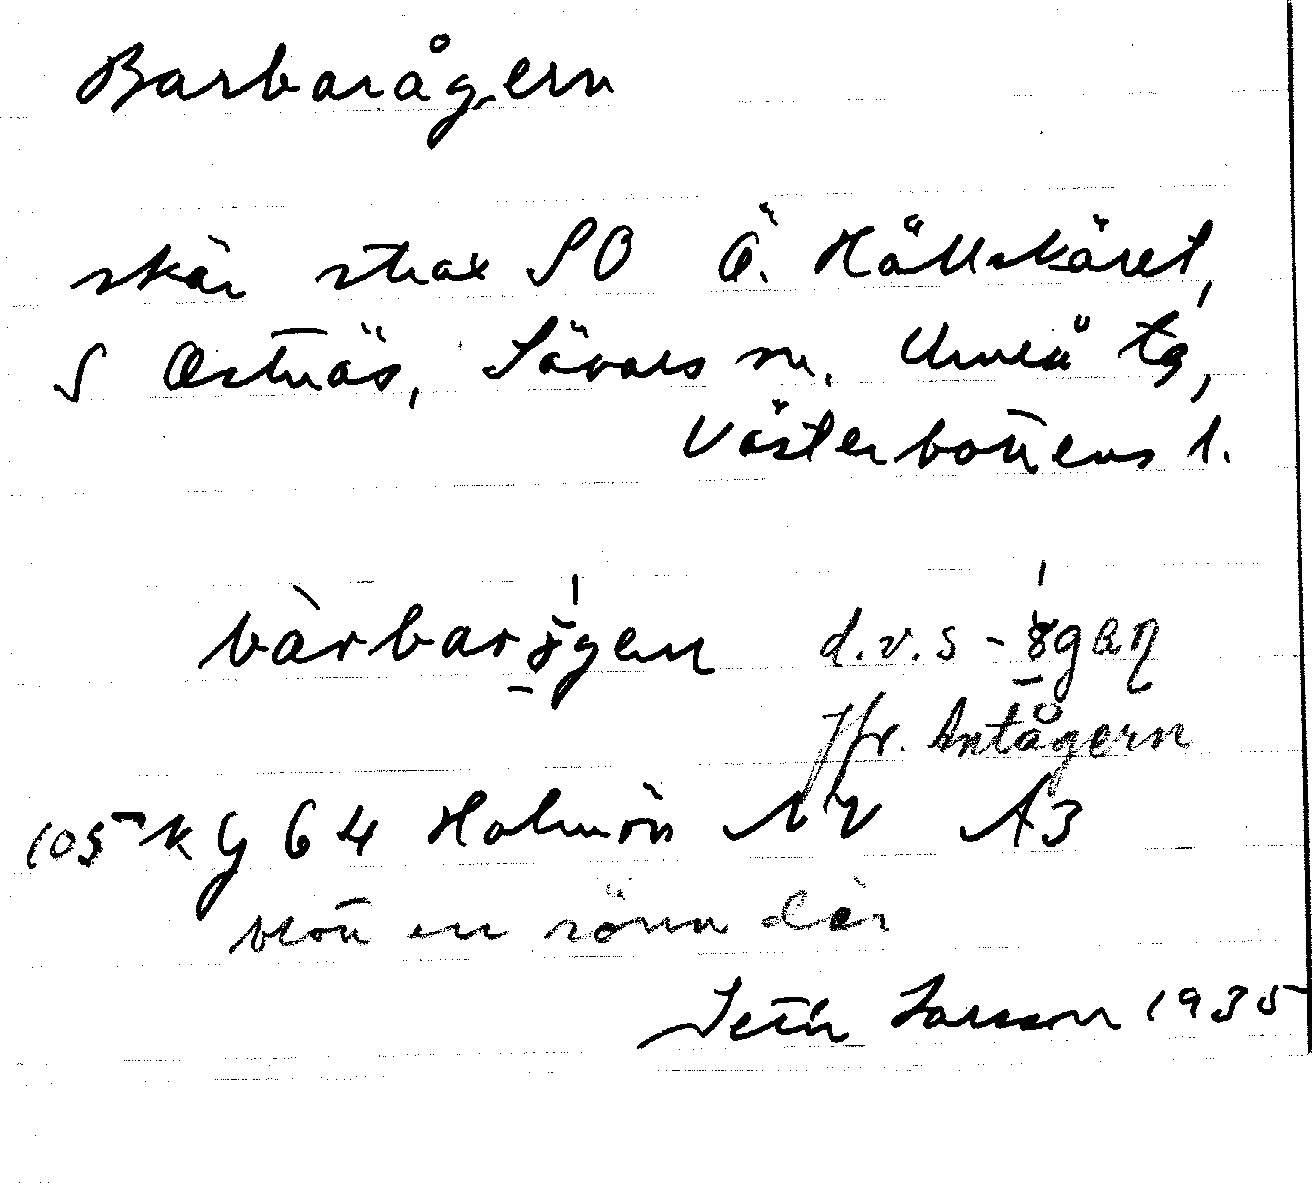 Barbarågern
skär strax SO Ö. Hällskäret,
S Östnäs, Sävars sn. Umeå tg,
Västerbottens l.
d.v.s
Jfr. Antågern
105 K G 64 Holmön NV A3
blott en rönn där
Larsson 1935